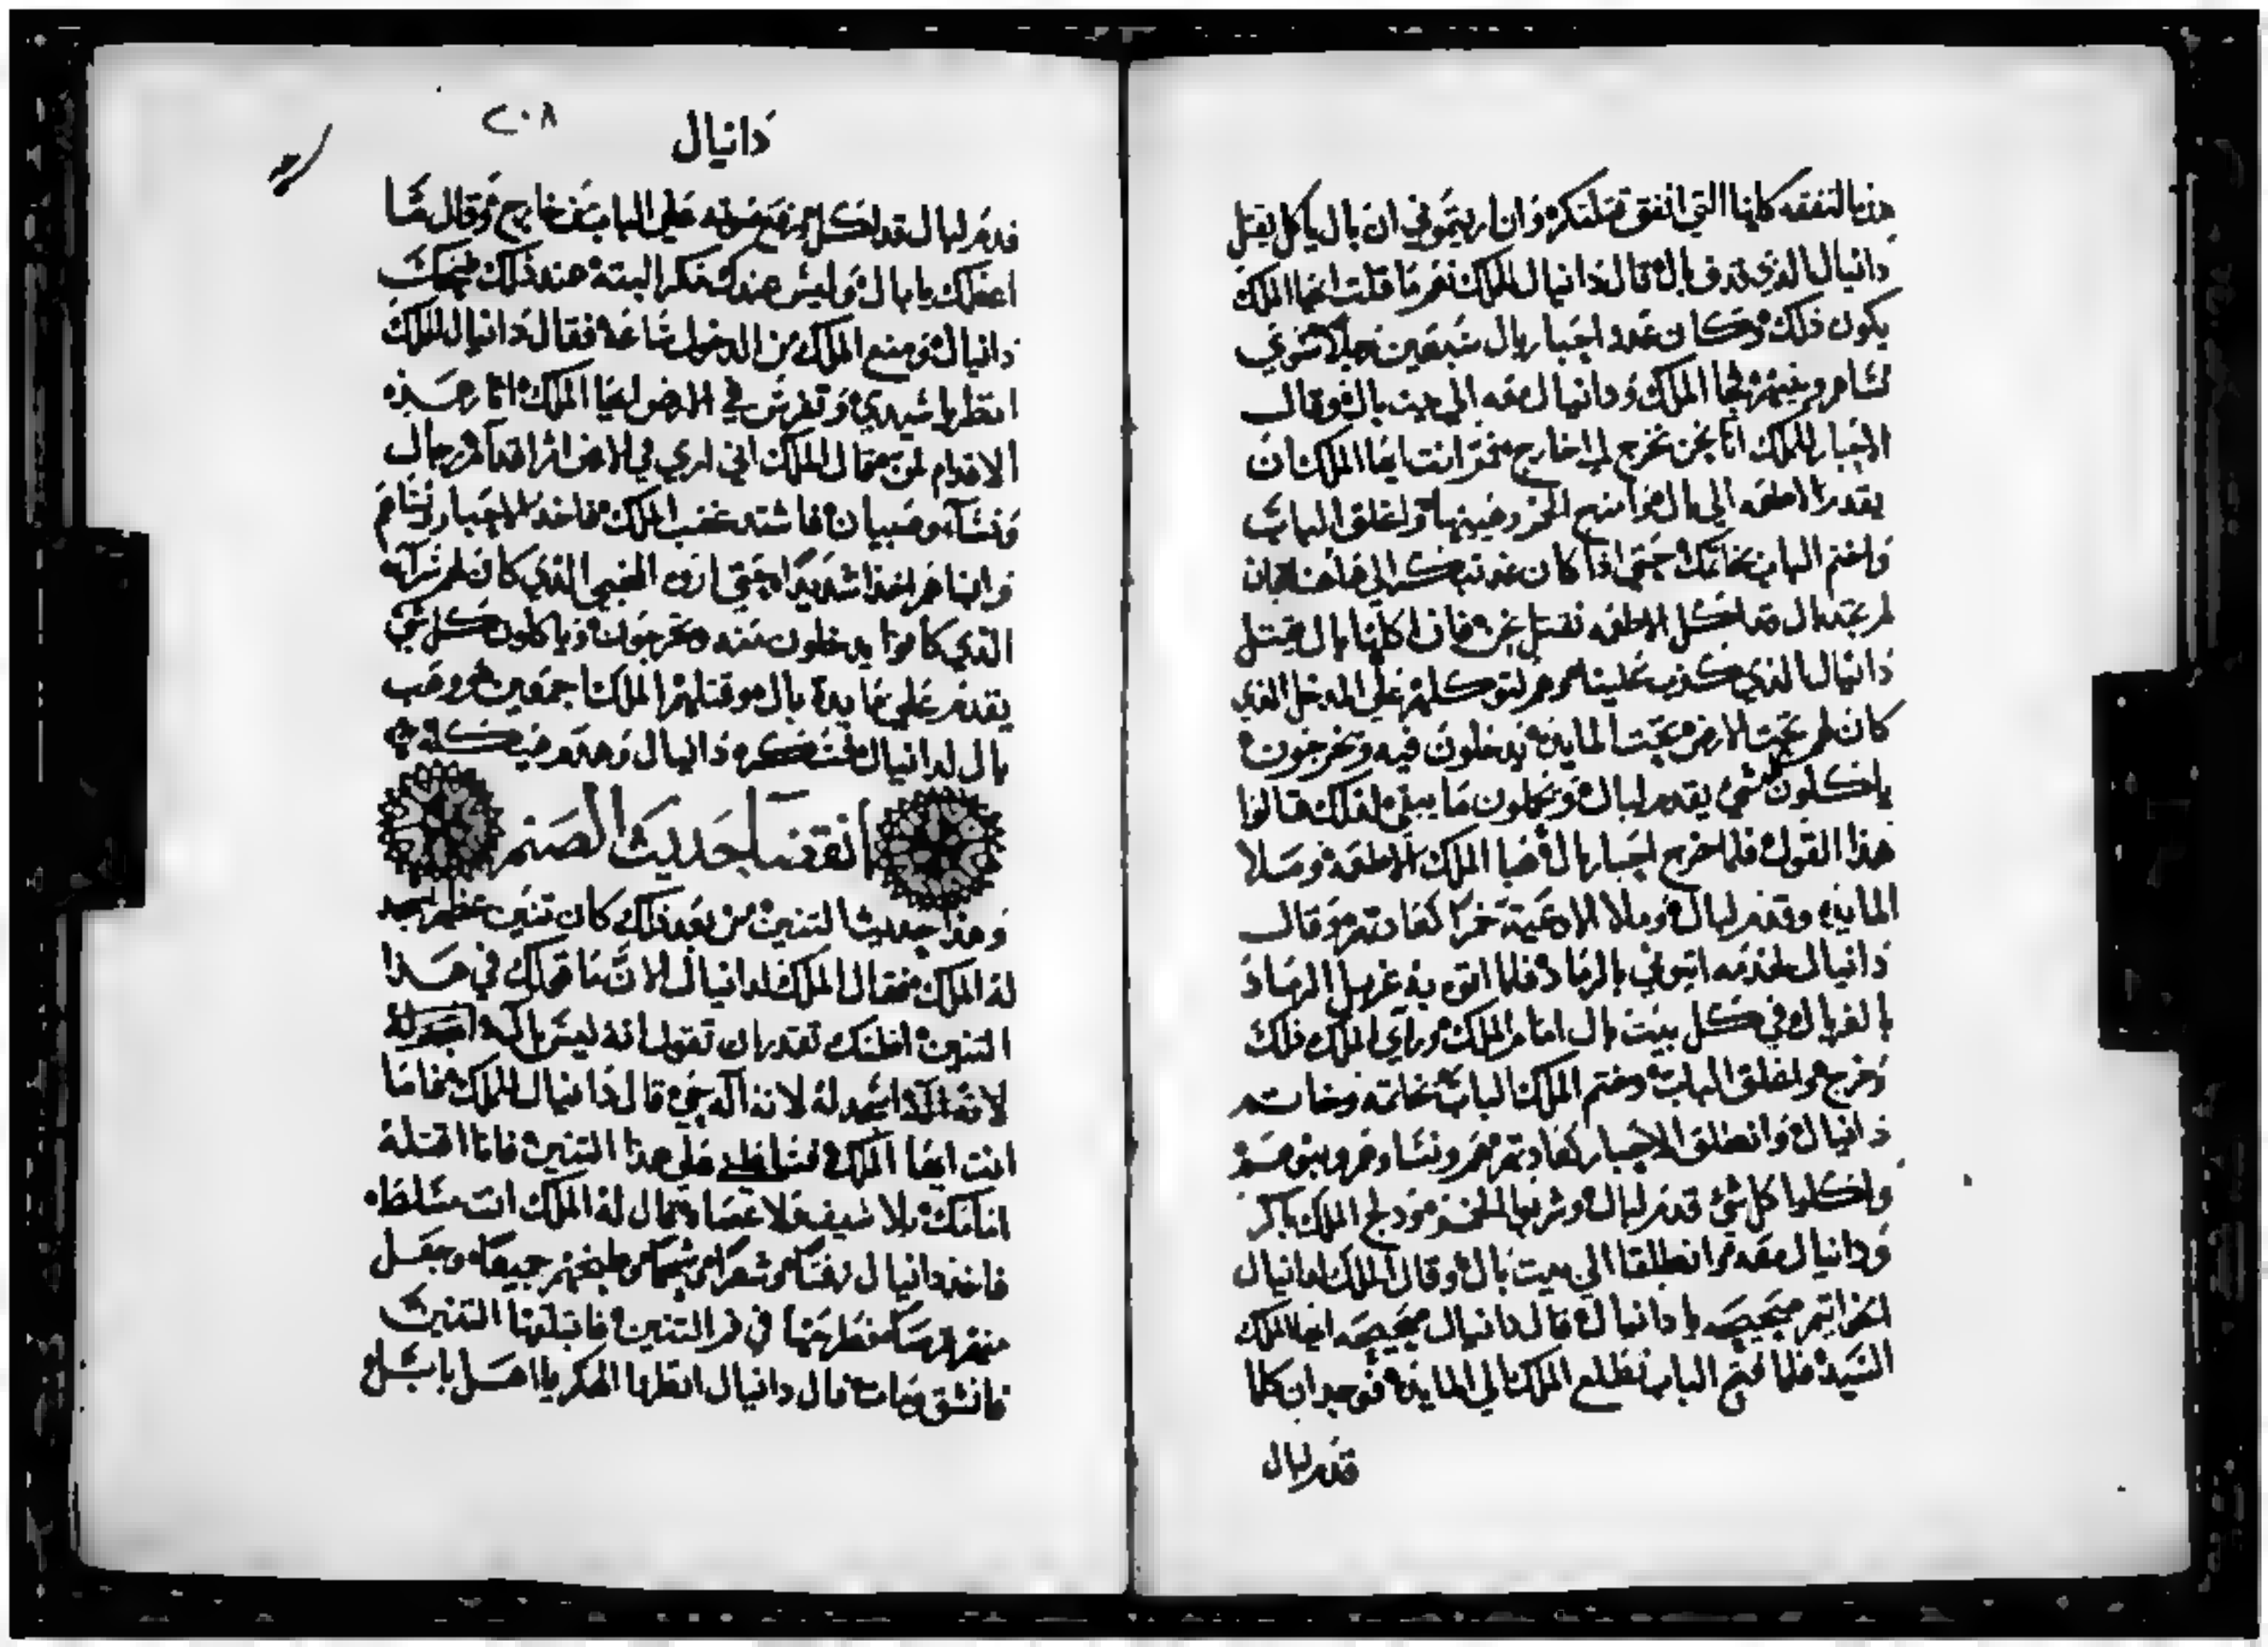 هذه النفقه كلها التي انفق قتلتكم وان اريتموني ان بال ياكل يقتل
دانيال الذي قدف بال قال دانيال للملك نعم ما قلت ايها الملك
يكون ذلك وكان عدد احبار بال سبعين رجلا سوي
نساهم وبنيهم الملك ودانيال معه الي بيت بال وقال
الاحبار للملك انا نحن نخرج الي خارج انت ايها الملك ان
يقدم الاطعمه الي بال امزج الخمر واغلق الباب
واختم الباب بخاتمك حتي اذا كان غد تبكر الي هاهنا فان
لم تجد بال قد اكل الاطعمه نقتل نحن فان اكلها بال يقتل
دانيال الذي كذب علينا وهم لتوكلهم علي المدخل الذي
كان لهم تحت الارض تحت المايده يدخلون فيه ويخرجون
ياكلون كل شي يقدم لبال ويحملون ما يبقي فلذلك قالوا
هذا القول فلما خرج احبار بال هيا الملك الاطعمه وملا
المايده وقدم لبال وملا الاوعية خمرا كعادتهم وقال
دانيال لخدمه ايتوني بالرماد فلما اتوه به غربل الرماد
بالغربال في كل بيت بال امام الملك وراي الملك ذلك
وخرج واغلق الباب وختم الملك الباب بخاتمه وخاتم
دانيال وانطلق الاحبار كعادتهم هم ونساوهم وبنوهم
واكلوا كل شي قدم لبال وشربوا الخمر ودلج الملك باكر
ودانيال معه وانطلقا الي بيت بال وقال الملك لدانيال
الخواتيم صحيحه يا دانيال قال دانيال صحيحه ايها الملك
السيد فلما فتح الباب تطلع الملك الي المايده فوجد ان كلما
قدم لبال
دانيال
٢٠٨
قدم لبال قد اكل رفع صوته علي الباب من خارج وقال ما
اعقلك يا بال وليس عندك مكر البتة عند ذلك ضحك
دانيال ومنع الملك من الدخول ساعة فقال دانيال للملك
انظر يا سيدي وتفرس في الارض ايها الملك اثار هذه
الاقدام لمن هي قال الملك اني اري في الارض اثر اقدام رجال
ونساء وصبيان فاشتد غضب الملك فاخذ الاحبار ونساهم
وابناهم اخذا شديدا حتي اروه المخبي الذي كان لهم سرا
الذي كانوا يدخلون منه ويخرجون وياكلون كل شي
يقدم علي مايدة بال وقتلهم الملك اجمعين ووهب
بال لدانيال فكسره دانيال وهدم هيكله
انقضا حديث الصنم
وهذا حديث التنين من بعد ذلك كان تنين عظيم يسجد
له الملك فقال الملك لدانيال الان ما قولك في هذا
التنين اظنك تقدر ان تقول انه ليس باله اسجد له
لانه اله اسجد له لانه اله حي قال دانيال للملك فاما
انت ايها الملك علي هذا التنين فانا اقتله
امامك بلا سيف ولا عصا وقال له الملك انت مسلط
فاخذ دانيال زفتا وشعرا وشحما وطبخهم جميعا وجعل
منهم فطرحها في فم التنين فابتلعها التنين
فانشق ومات قال دانيال انظروا الهكم يا اهل بابل